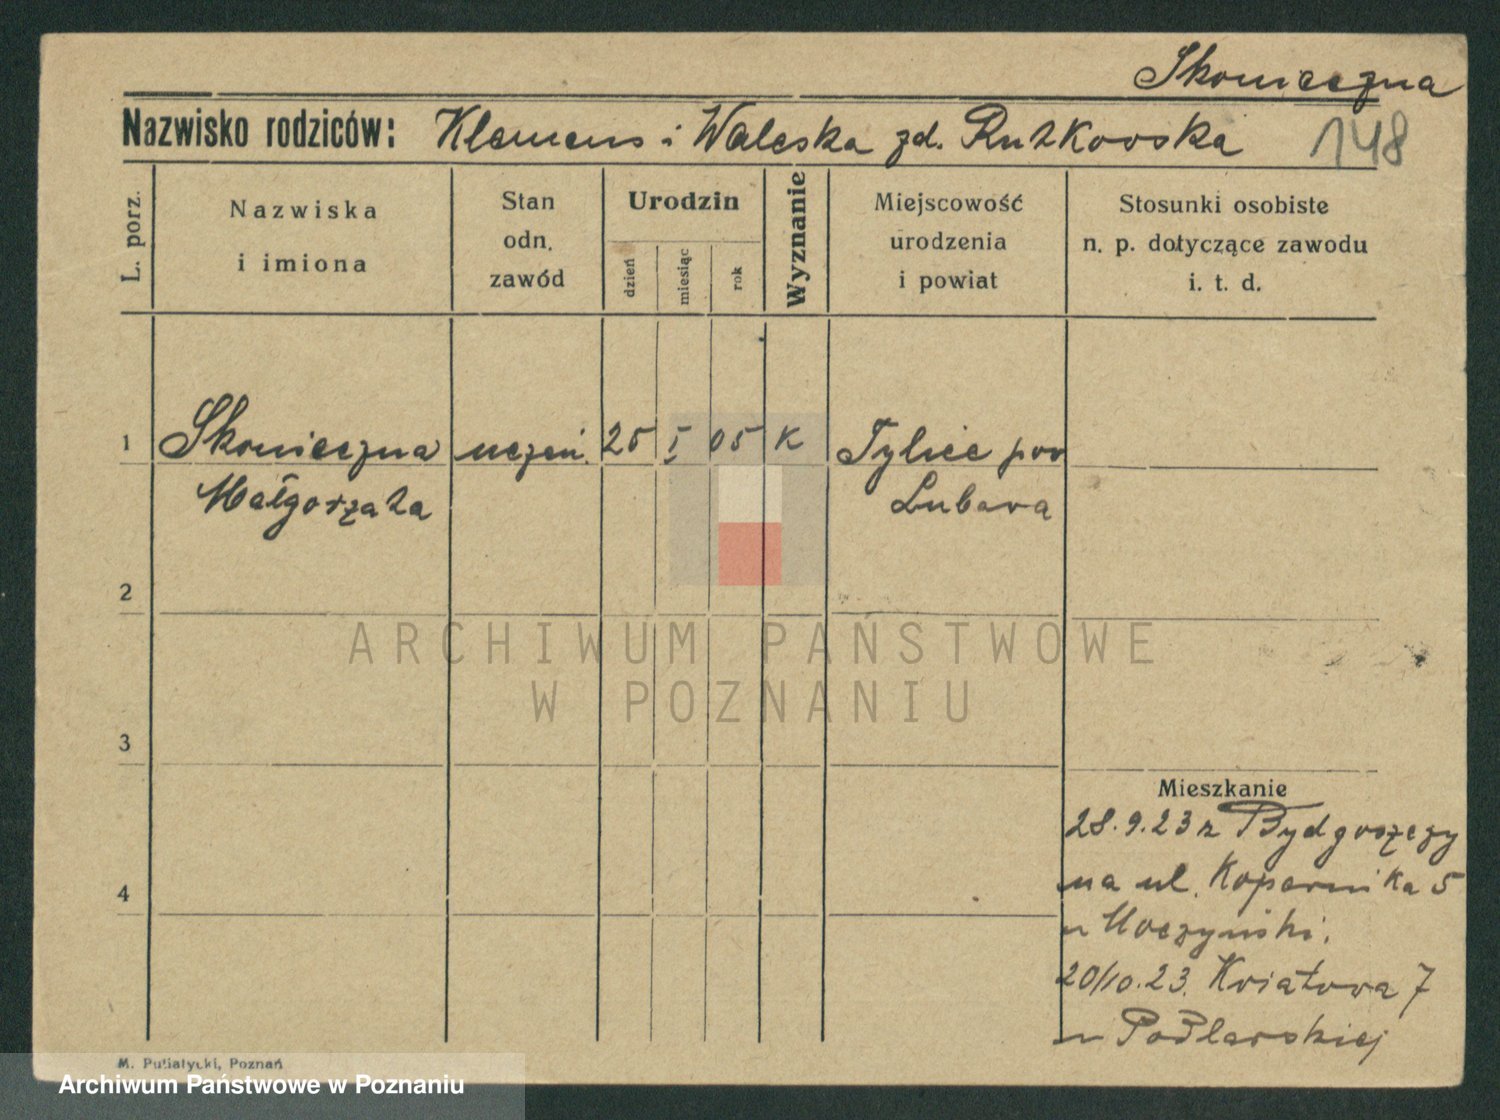 Skonieczna
Nazwisko rodziców: Klemens i Waleska zd. Rutkowska 148
L. porz.
Nazwiska
i imiona
Stan
odn.
zawód
Urodzin
dzień
miesiąc
rok
Wyznanie
Miejscowość
urodzenia
i powiat
Stosunki osobiste
n. p. dotyczące zawodu
i. t. d.
1 Skonieczna uczeń. 25 I 05 K Tylice pow
Małgorzata Lubawa
2
3
4
Mieszkanie
28.9.23 z Bydgoszczy
na ul. Kopernika 5
u
20/10.23. Kwiatowa 7
u
M. Putiatycki, Poznań
ARCHIWUM PAŃSTWOWE
W POZNANIU
Archiwum Państwowe w Poznaniu